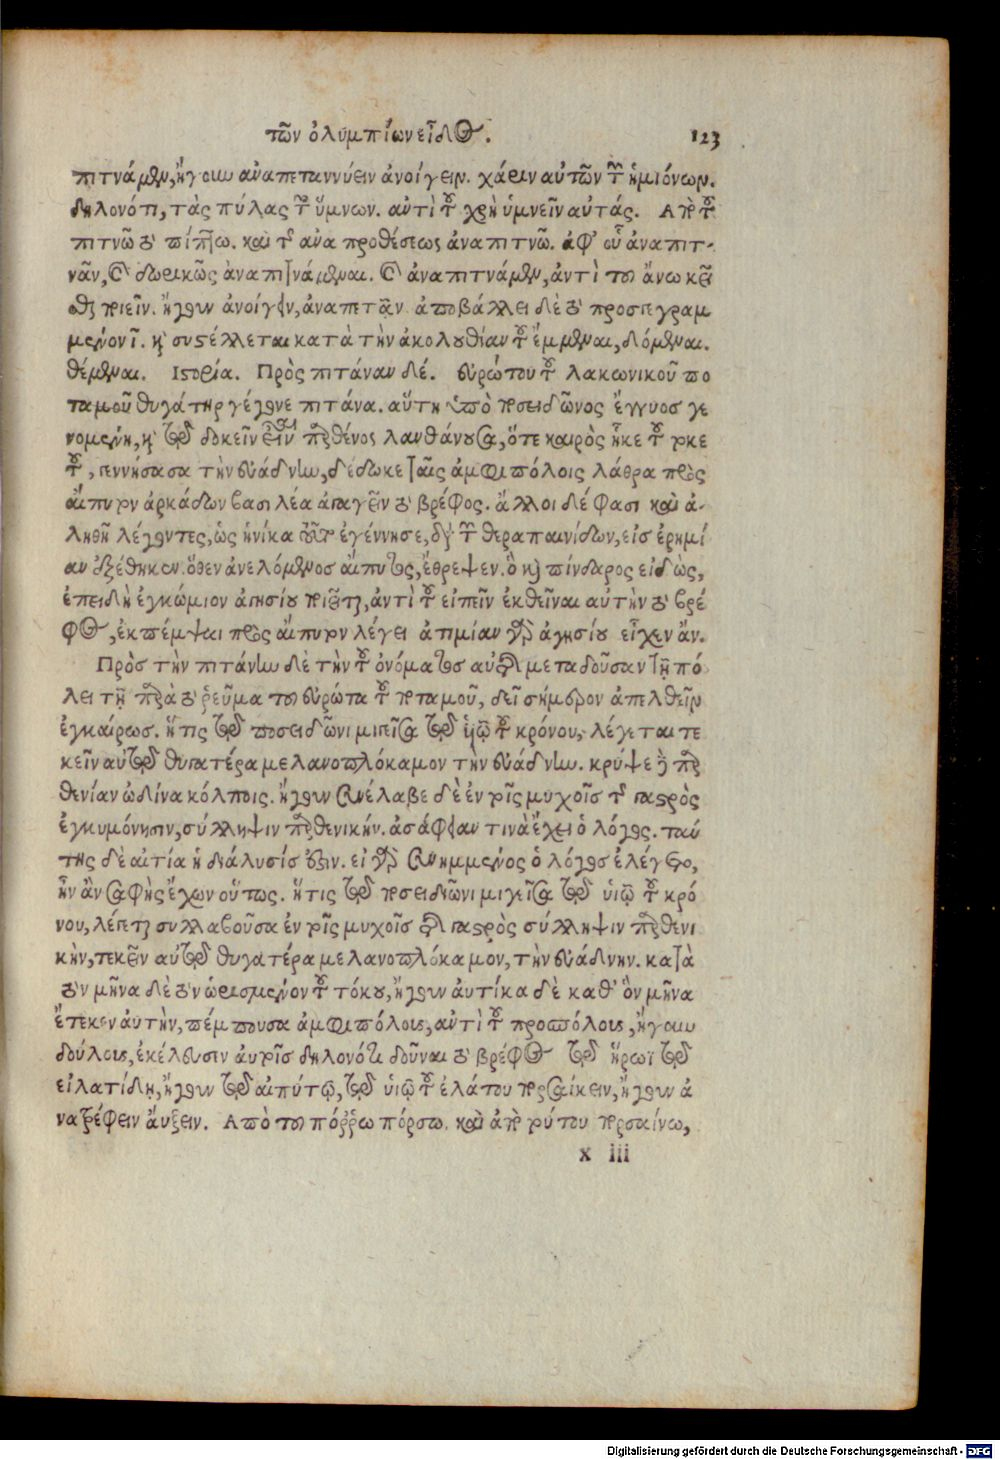 τῶν ὀλυμπίων εἶδος. 123
πιτνάμεν, ἤγουν ἀναπεταννύειν ἀνοίγειν. χάριν αὐτῶν τῶν ἡμιόνων.
δηλονότι, τὰς πύλας τῶν ὕμνων. αντὶ τοῦ χρὴ ὑμνεῖν αὐτάς. Απὸ τοῦ
πιτνῶ τὸ πίπτω. καὶ τῆς ανα προθέσεως ἀναπιτνῶ. ἀφ' οὗ ἀναπιτ-
νᾶν, καὶ δωρικῶς ἀναπιτνάμεναι. καὶ ἀναπιτνάμεν, ἀντὶ τοῦ ἄνω
ἤγουν ἀνοίγειν, ἀναπετᾶν. ἀποβάλλει δὲ τὸ προσγεγραμ
μένον ῖ. καὶ συστέλλεται κατὰ τὴν ἀκολουθίαν τοῦ ἔμμεναι, δόμεναι.
θέμεναι. Ιστορία. Πρὸς πιτάναν δέ. εὐρώτου τοῦ λακωνικοῦ πο
ταμοῦ θυγάτηρ γέγονε πιτάνα. αὕτη ὑπὸ ποσειδῶνος ἔγγυος γε
νομένη, καὶ τῷ δοκεῖν εἶναι παρθένος λανθάνουσα, ὅτε καιρὸς ἧκε τοῦ τοκε
τοῦ, γεννήσασα τὴν εὐάδνην, δέδωκε ταῖς ἀμφιπόλοις λάθρα πρὸς
αἴπυτον ἀρκάδων βασιλέα ἀπαγεῖν τὸ βρέφος. ἄλλοι δέ φασι καὶ ἀ-
ληθῆ λέγοντες, ὡς ἡνίκα ἐγέννησε, διὰ τῶν θεραπαινίδων, εἰς ἐρημί
αν ἐξέθηκεν. ὅθεν ἀνελόμενος αἴπυτος, ἔθρεψεν. ὃ καὶ πίνδαρος εἰδὼς,
ἐπειδὴ ἐγκώμιον ἀγησίου ποιεῖται, ἀντὶ τοῦ εἰπεῖν ἐκθεῖναι αὐτὴν τὸ βρέ
φος, ἐκπέμψαι πρὸς αἴπυτον λέγει ἀτιμίαν γὰρ ἀγησίου εἶχεν ἄν.
Πρὸς τὴν πιτάνην δὲ τὴν τοῦ ὀνόματος αὐτῆς μεταδοῦσαν τῇ πό
λει τῇ παρὰ τὸ ῥεῦμα τοῦ εὐρώτα τοῦ ποταμοῦ, δεῖ σήμερον ἀπελθεῖν
ἐγκαίρως. ἥτις τῷ ποσειδῶνι μιγεῖσα τῷ υἱῷ τοῦ κρόνου, λέγεται τε
κεῖν αὐτῷ θυγατέρα μελανοπλόκαμον τὴν εὐάδνην. κρύψε δὲ παρ
θενίαν ὠδίνα κόλποις. ἤγουν συνέλαβε δὲ ἐν τοῖς μυχοῖς τῆς γαστρὸς
ἐγκυμόνησιν, σύλληψιν παρθενικήν. ἀσάφειαν τινὰ ἔχει ὁ λόγος. ταύ
της δὲ αἰτία ἡ διάλυσίς ἐστιν. εἰ γὰρ συνημμένος ὁ λόγος ἐλέγετο,
ἦν ἂν σαφὴς ἔχων οὕτως. ἥτις τῷ ποσειδῶνι μιγεῖσα τῷ υἱῷ τοῦ κρό
νου, λέγεται συλλαβοῦσα ἐν τοῖς μυχοῖς τῆς γαστρὸς σύλληψιν παρθενι
κὴν, τεκεῖν αὐτῷ θυγατέρα μελανοπλόκαμον, τὴν εὐάδνην. κατὰ
τὸν μῆνα δὲ τὸν ὡρισμένον τοῦ τόκου, ἤγουν ἀυτίκα δὲ καθ' ὃν μῆνα
ἔτεκεν αὐτὴν, πέμπουσα ἀμφιπόλους, αντὶ τοῦ προπόλους, ἤγουν
δούλους, ἐκέλευσεν ἀυτοῖς δηλονότι δοῦναι τὸ βρέφος τῷ ἥρωϊ τῷ
εἰλατίδῃ, ἤγουν τῷ αἰπύτῳ, τῷ υἱῷ τοῦ ἐλάτου πορσαίνειν, ἤγουν ἀ
νατρέφειν ἄυξειν. Απὸ τοῦ πόρρω πόρσω. καὶ ἀπὸ τούτου πορσαίνω,
x iii
Digitalisierung gefördert durch die Deutsche Forschungsgemeinschaft - DFG